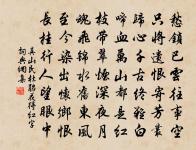 愁鎖巴雲往事空
只將遺恨寄芳叢
歸心千古終難白
啼血萬山都是紅
枝帶翠煙深夜月
魂飛錦水舊東風
至今染出懷鄉恨
長挂行人望眼中
真山民杜鵑花得紅字
詞典網集